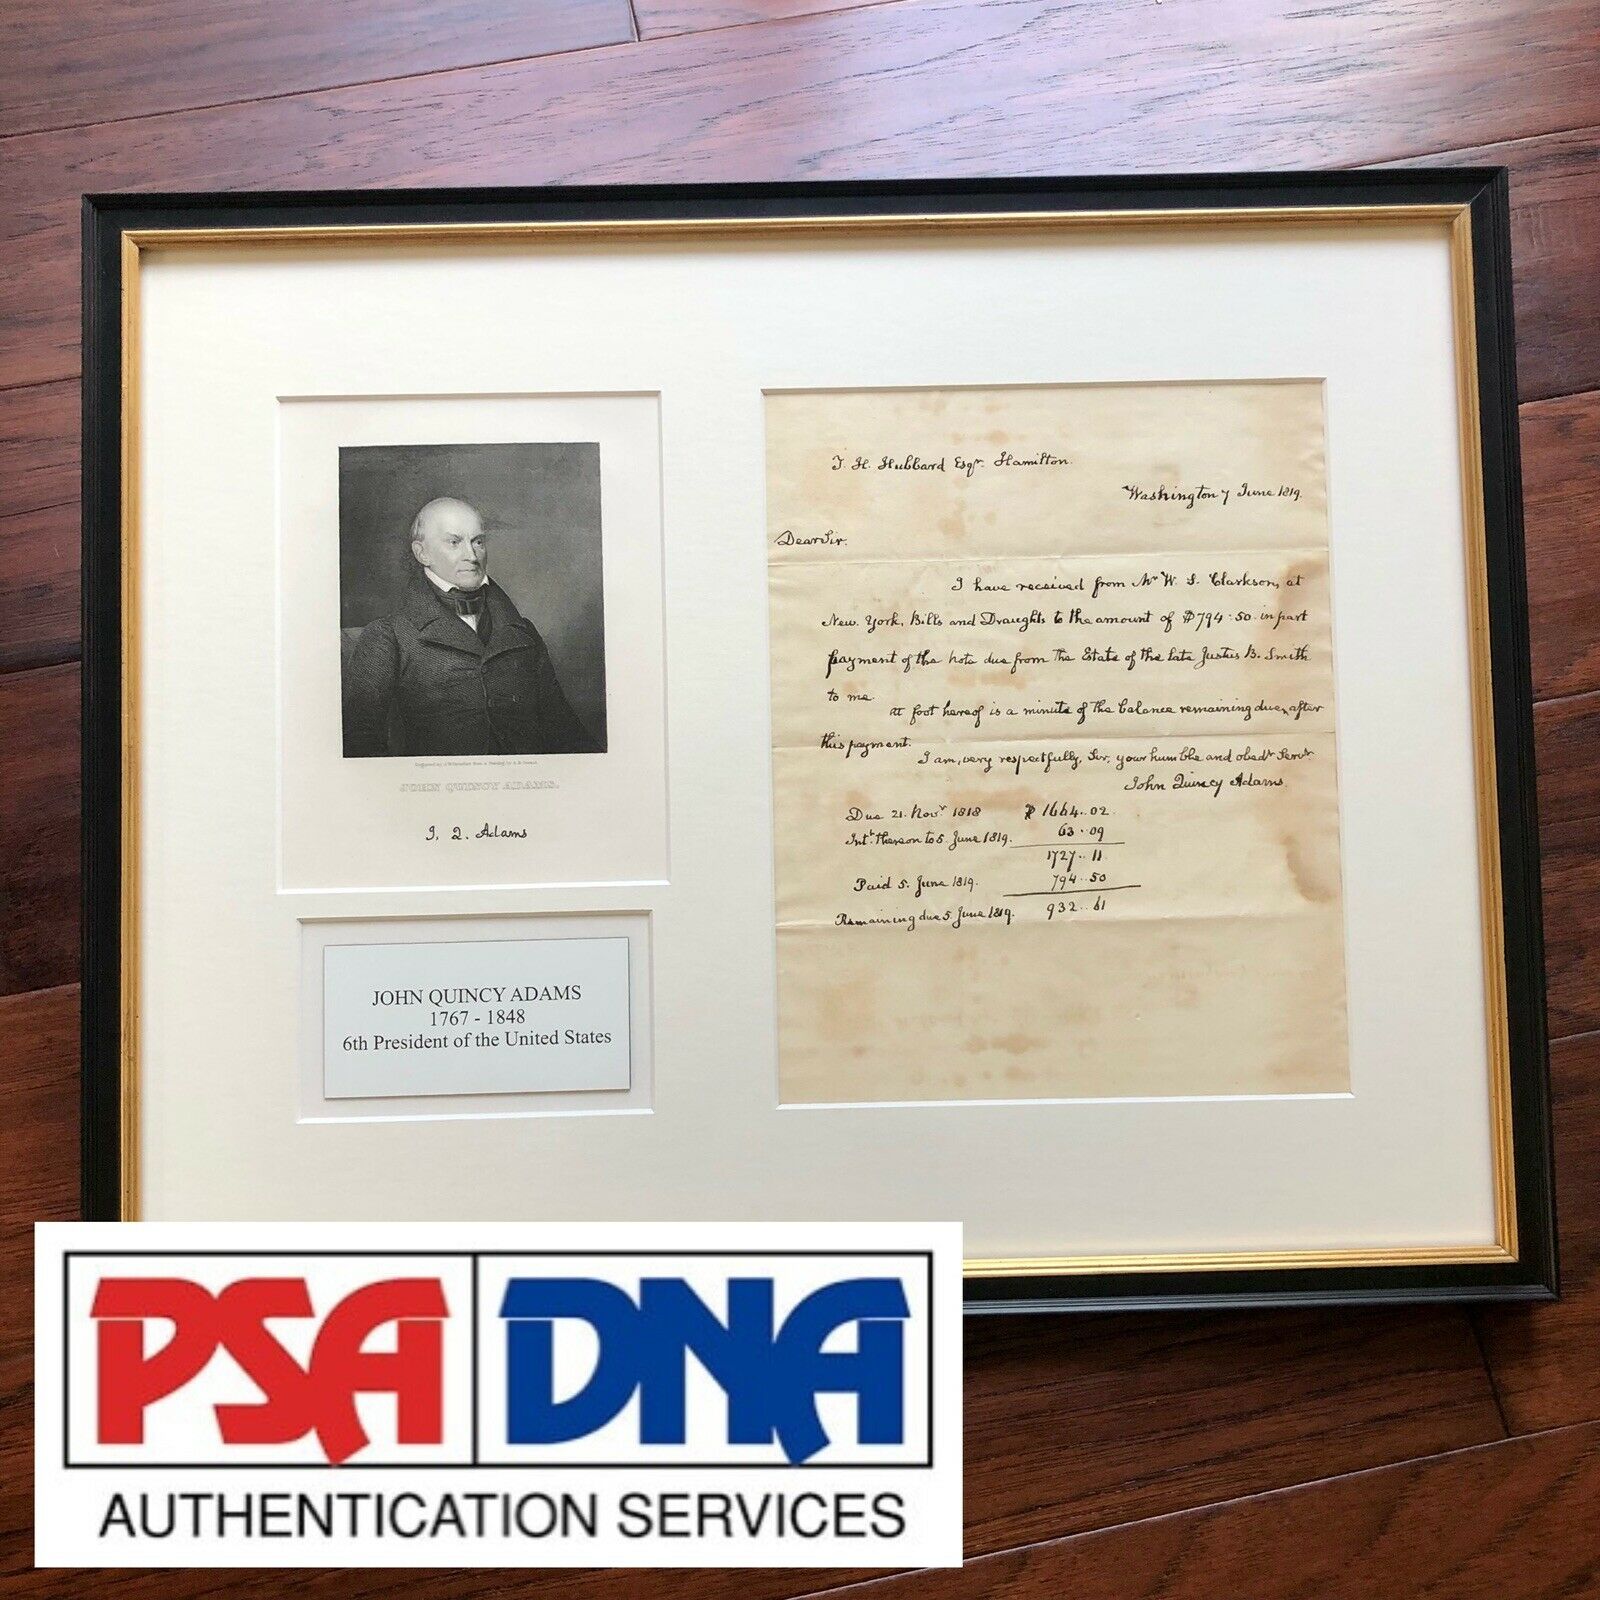 JOHN QUINCY ADAMS.
J. Q. Adams
JOHN QUINCY ADAMS
1767 - 1848
6th President of the United States
T. H. Hubbard Esqr. Hamilton.
Washington 7 June 1819.
Dear Sir.
I have received from Mr W. S. Clarkson, at
New York, Bills and Draughts to the amount of $794.50 in part
payment of the note due from the Estate of the late Justus B. Smith
to me.
At foot hereof is a minute of the balance remaining due, after
this payment.
I am, very respectfully, Sir, your humble and obedt Servt
John Quincy Adams.
Due 21. Novr 1818 $1664..02.
Intt. thereon to 5 June 1819. 63.09
1727..11
Paid 5. June 1819. 794..50
Remaining due 5 June 1819. 932..61
PSA DNA
AUTHENTICATION SERVICES